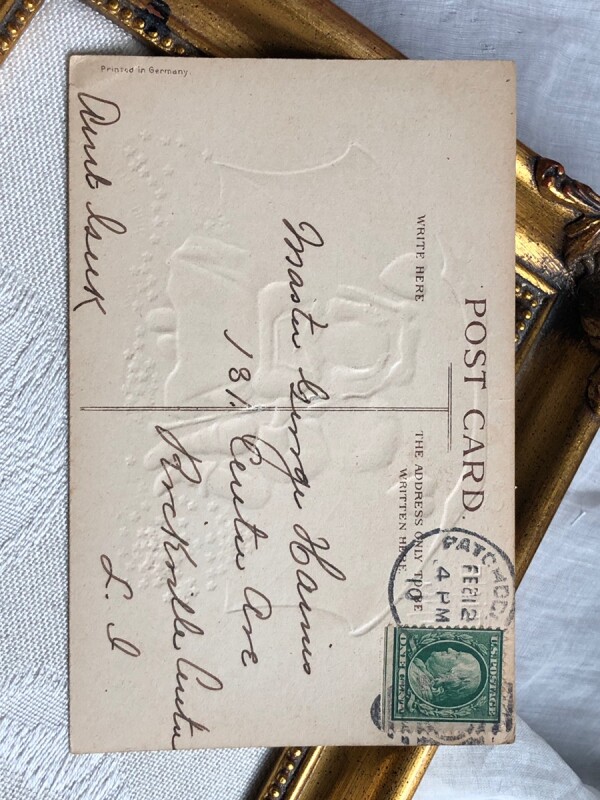 POST CARD.
WRITE HERE
THE ADDRESS ONLY TO BE
WRITTEN HERE.
FEB 12
4 PM
U.S. POSTAGE
ONE CENT
Master George Harris
181. Centre Ave
Rockville Centre
L. I
Aunt
Printed in Germany.